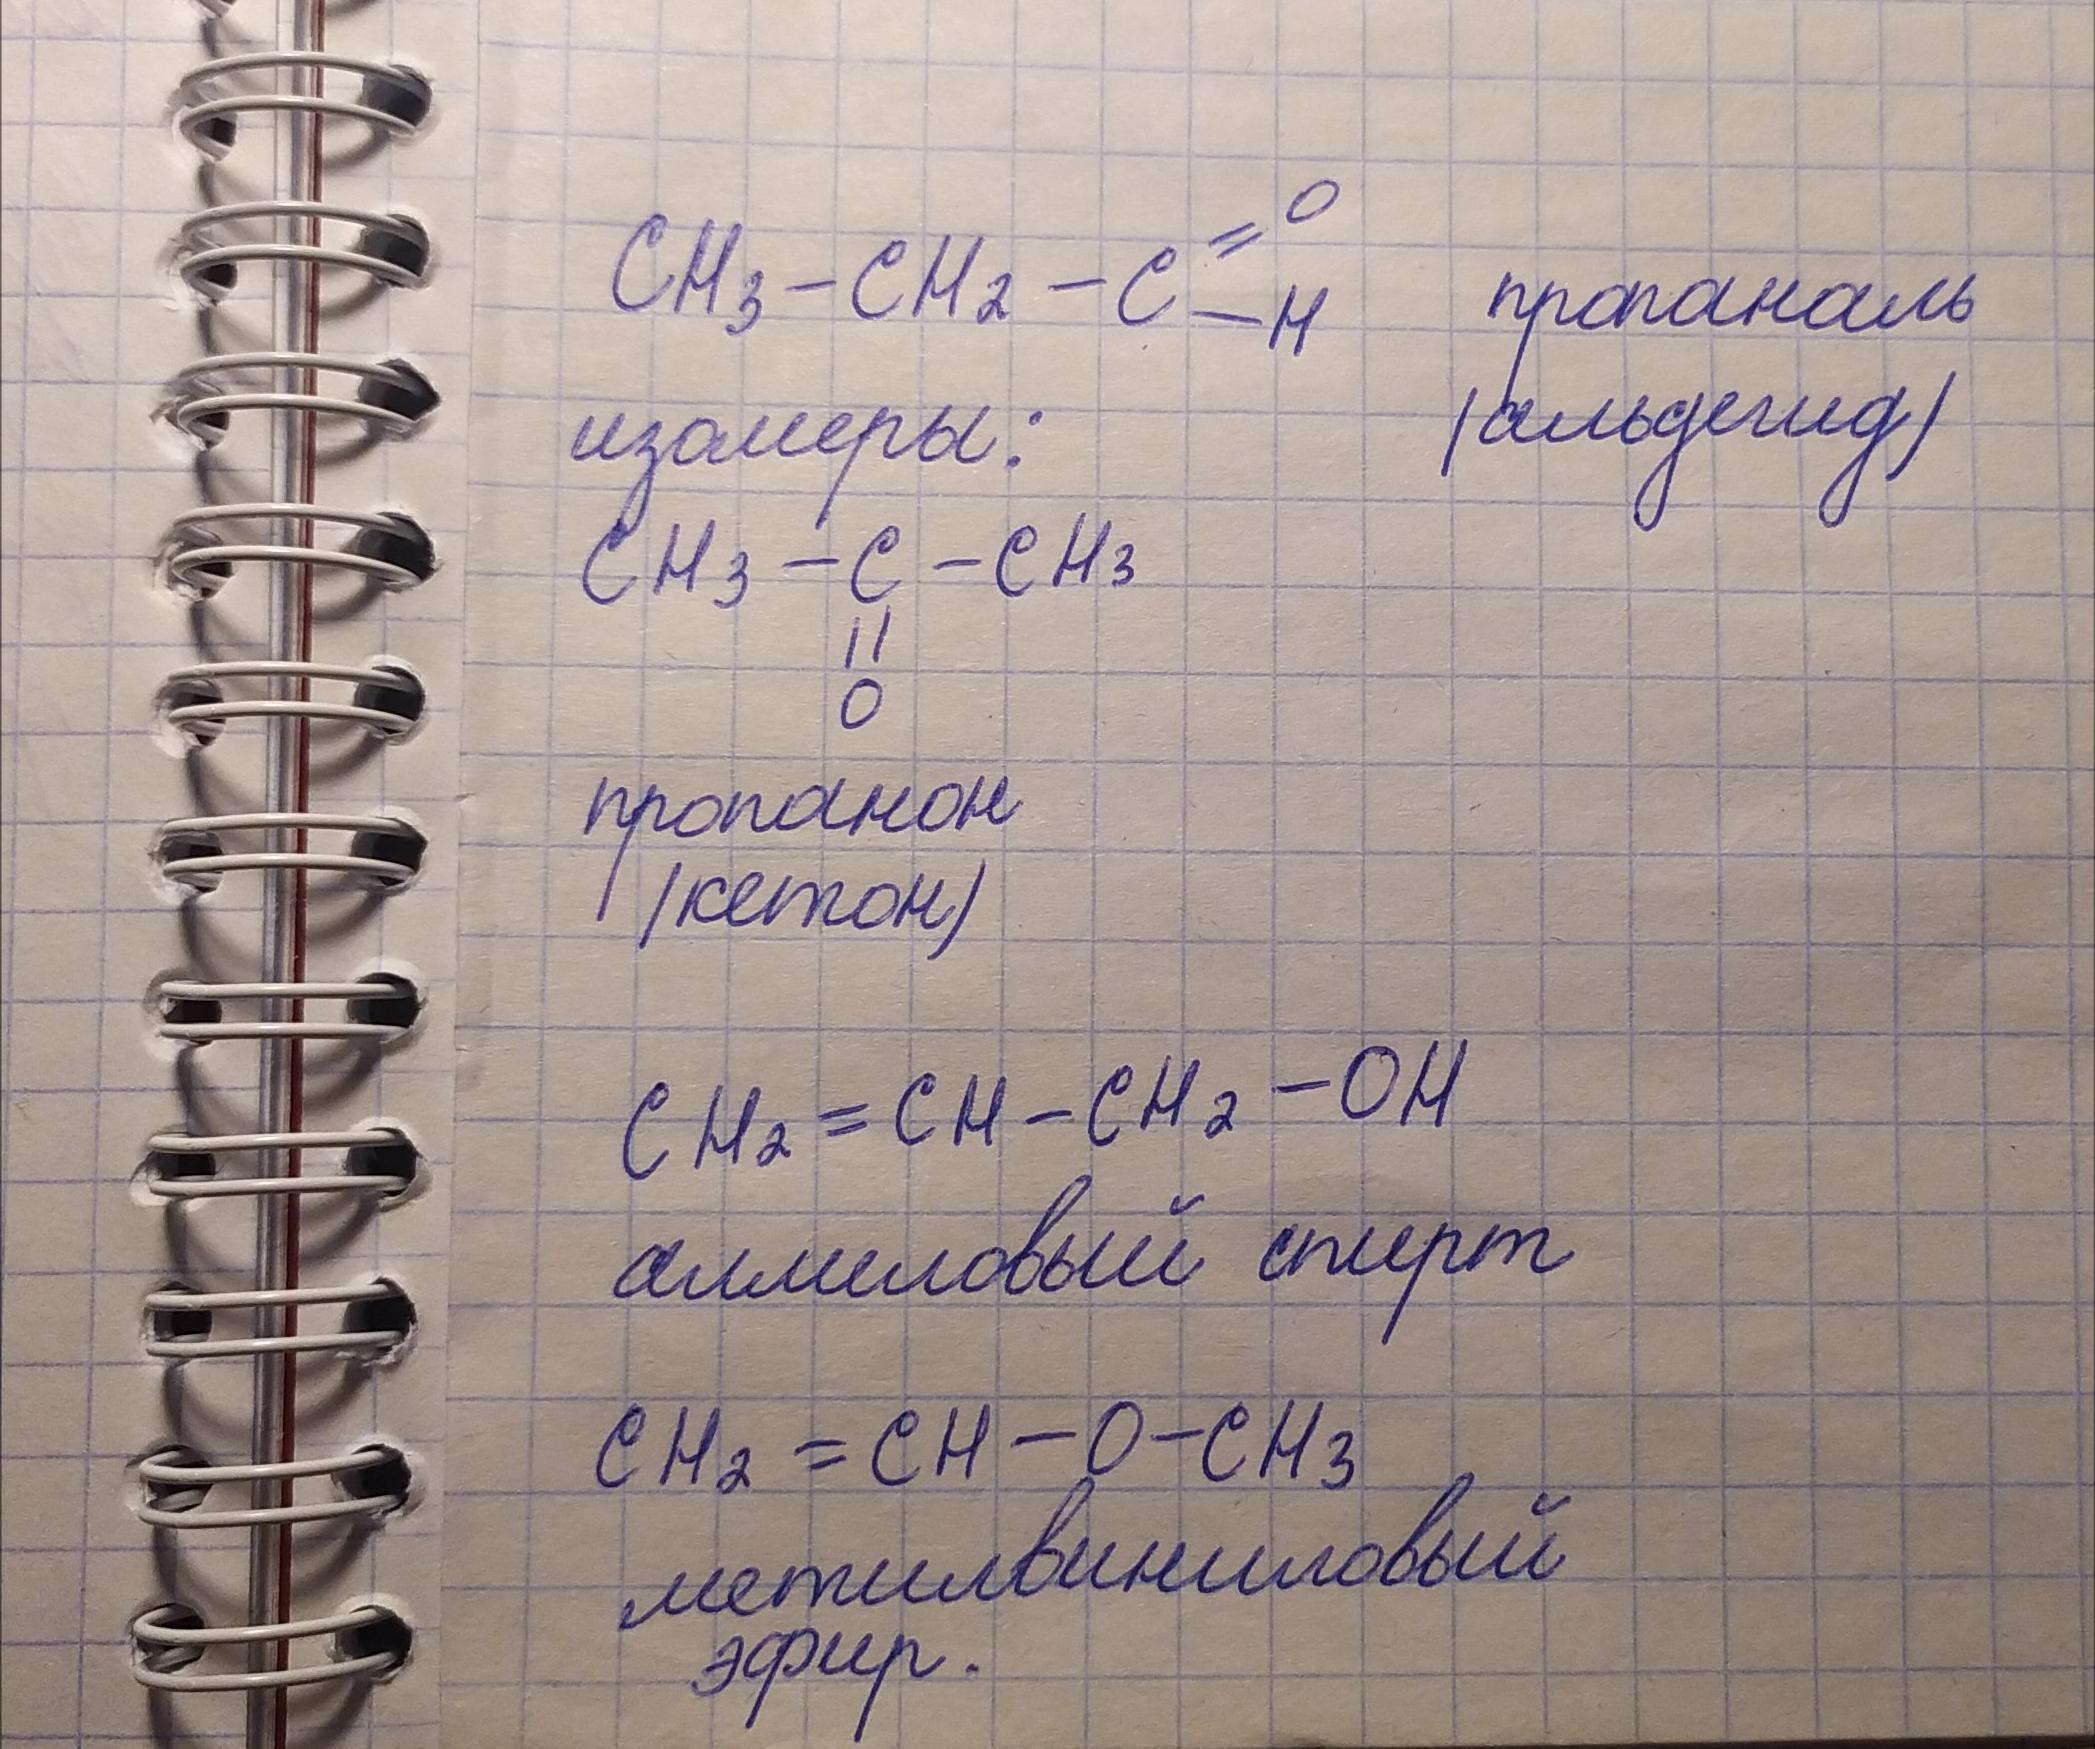 CH3-CH2-C=O
-H
пропаналь
/альдегид/
изомеры:
CH3-C-CH3
||
O
пропанон
/кетон/
CH2=CH-CH2-OH
аллиловый спирт
CH2=CH-O-CH3
метилвиниловый
эфир.